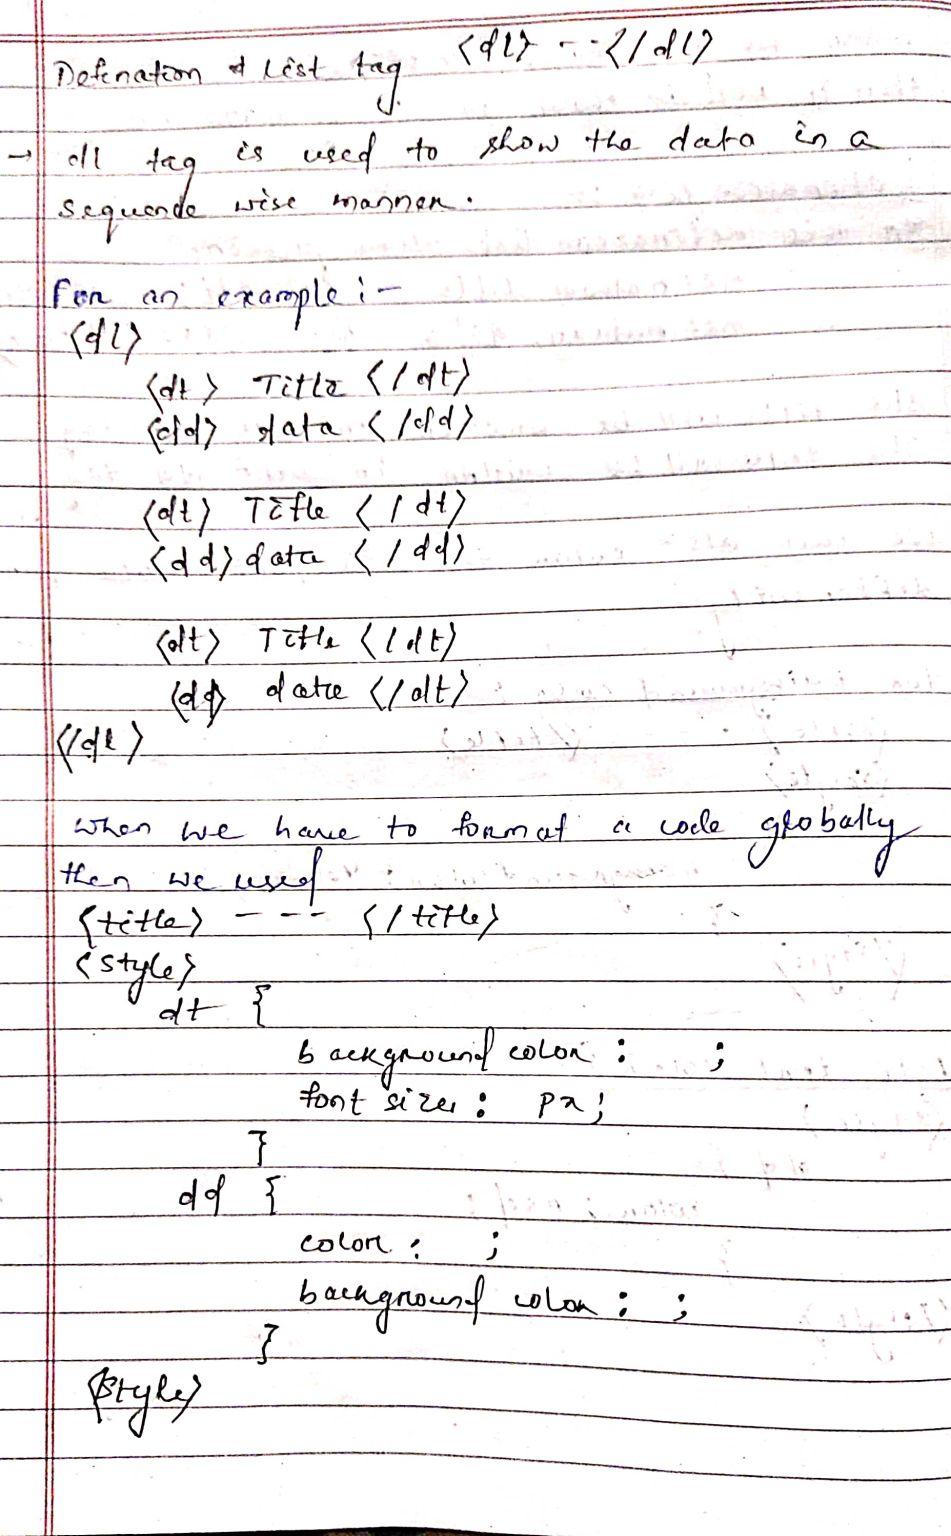 Defination & List tag <dl> --</dl>
→ dl tag is used to show the data in a
sequende wise manner.
For an example :-
<dl>
<dt> Title </dt>
<dd> data </dd>
<dt> Title </dt>
<dd> data </dd>
<dt> Title </dt>
<dd> data </dt>
</dl>
when we have to format a code globally
then we used
<title> ---- </title>
<style>
dt {
background color : ;
font size : px;
}
dd {
color : ;
background color : ;
}
</style>